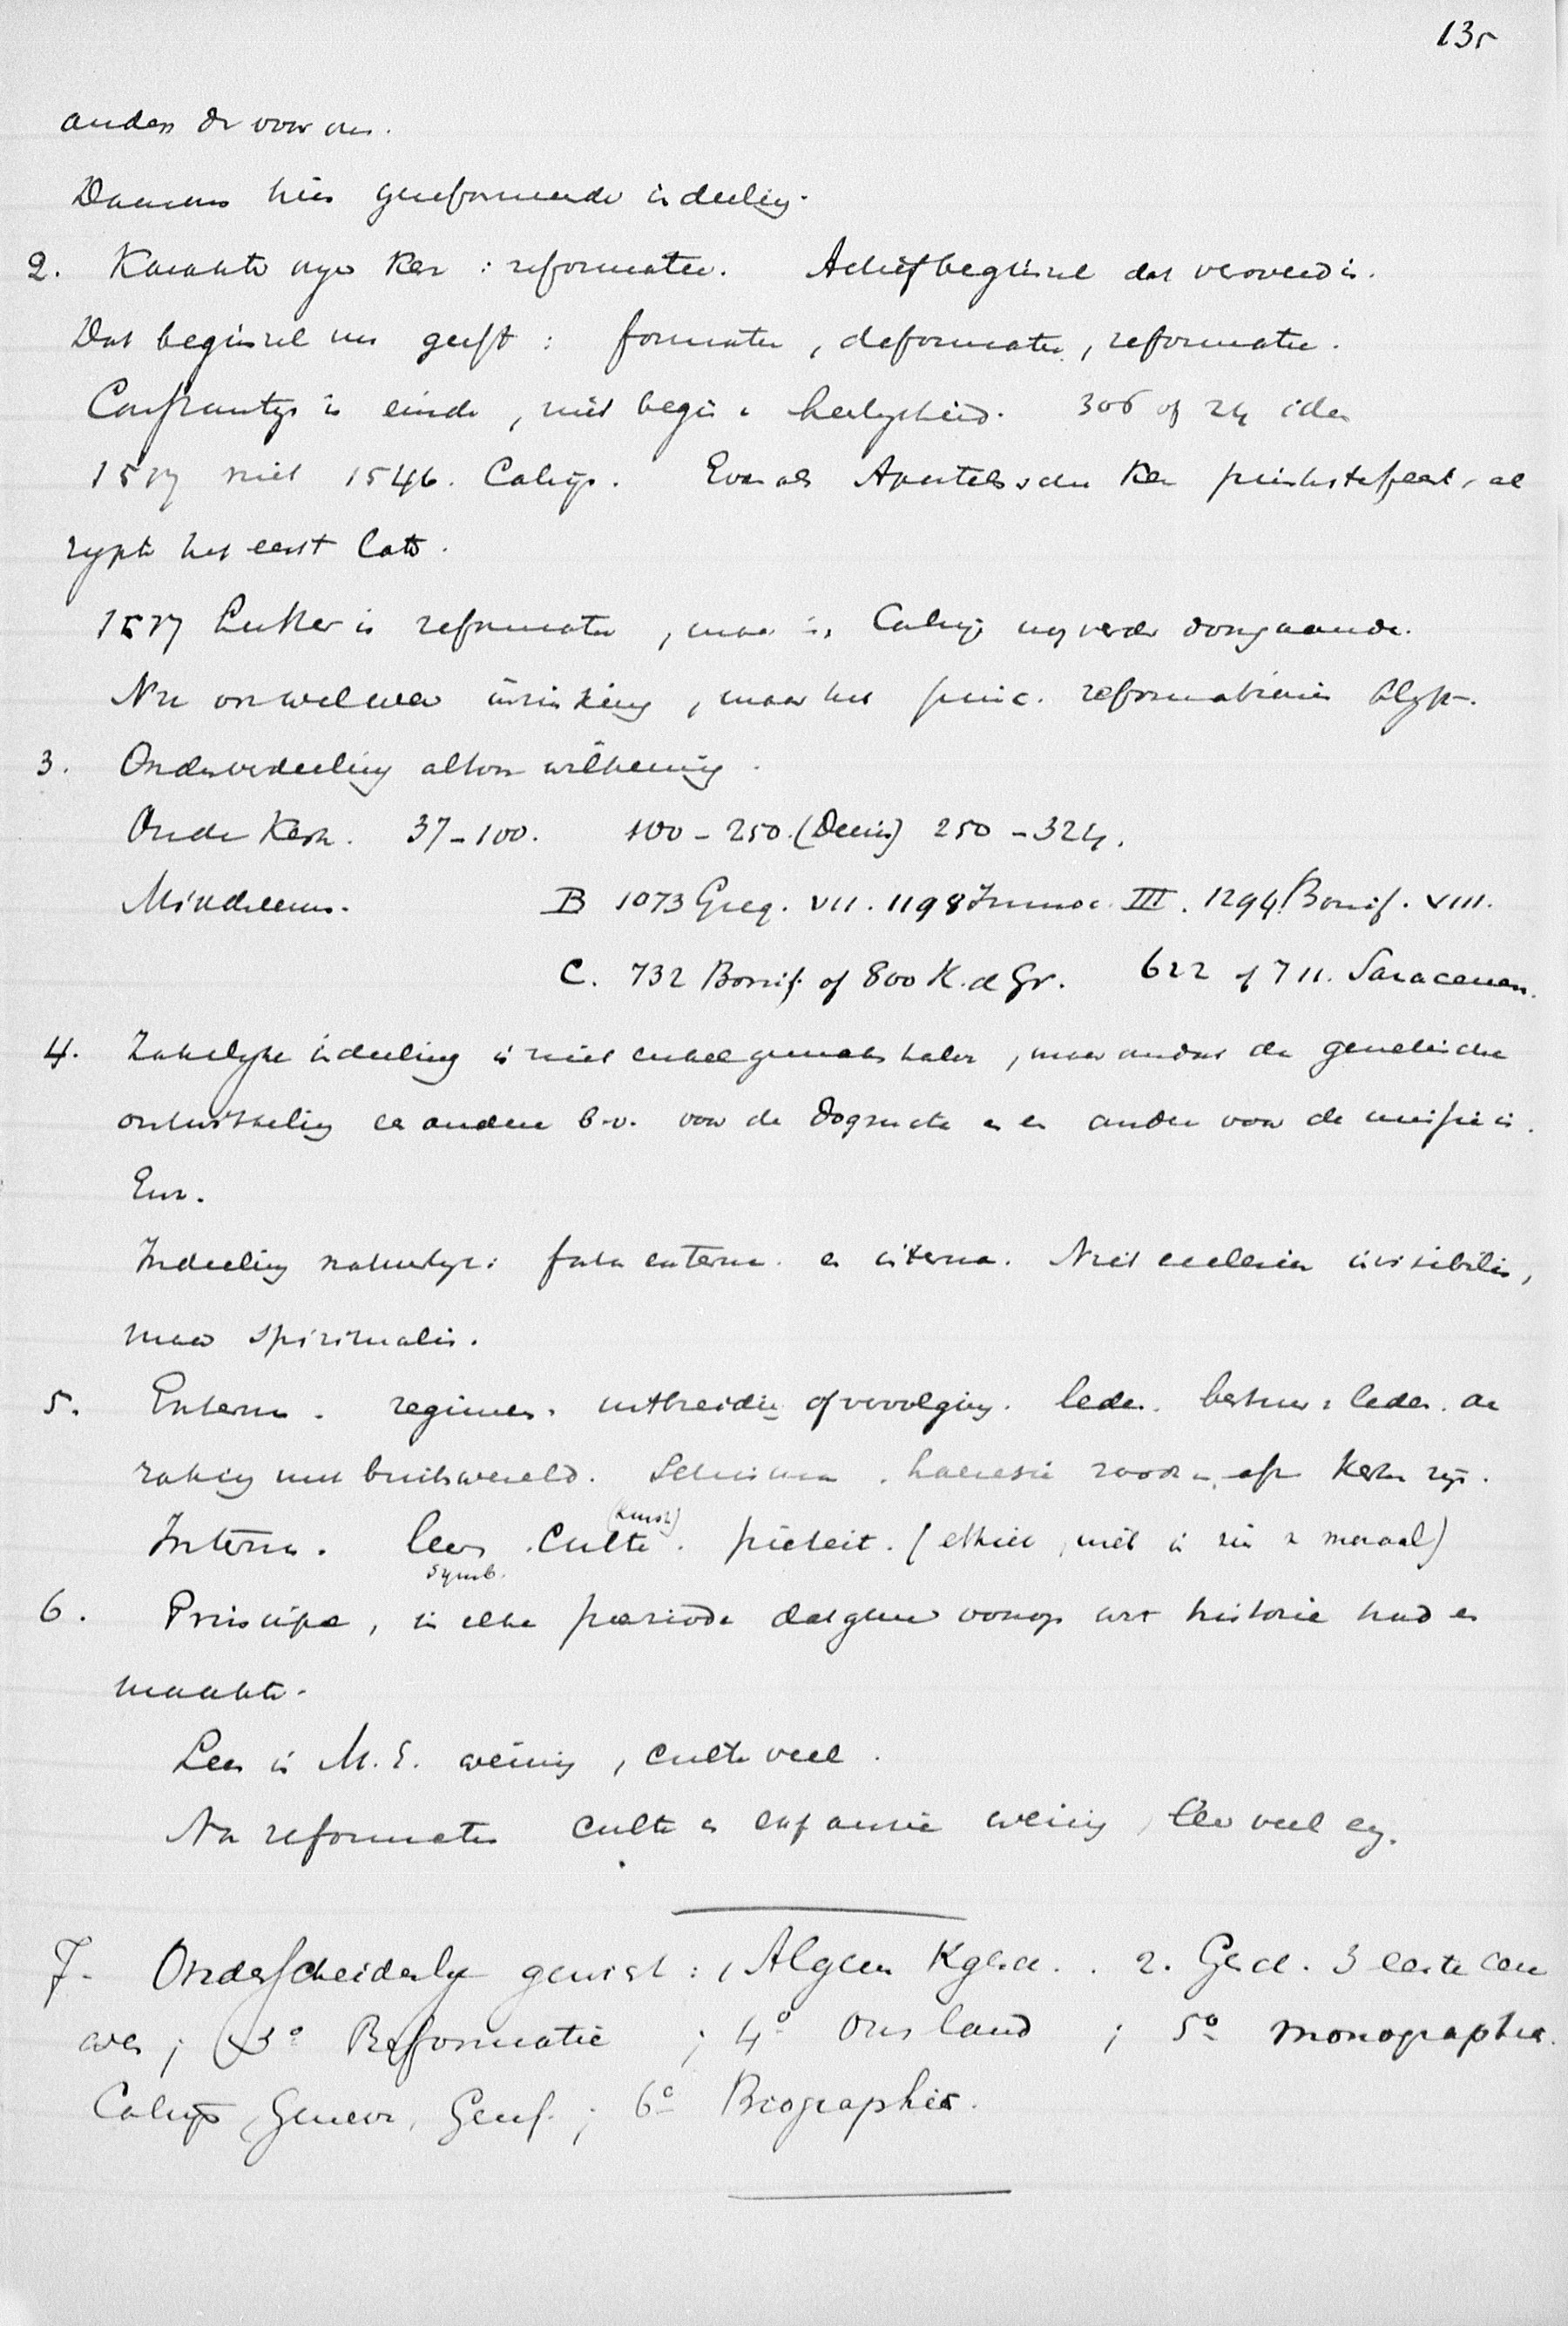 135
anders dr voor ons.
Daarom hier gereformeerde indeeling.
2. Karakter onzer Kerk : reformatie. Actief beginsel dat veroverd is.
Dat beginsel nu geeft : formatie, deformatie, reformatie.
Constantijn is einde, niet begin v heerlijkheid. 306 of 24 idem
1517 niet 1546. Calvijn. Evenals Apostelsche Kerk pinksterfeest, al
rijpte het eerst later.
1517 Luther is reformator, maar is Calvijn nog verder doorgaande.
Nu onwel weer inzinking, maar het princ. reformationis blijft.
3. Onderverdeeling altoos willekeurig.
Oude Kerk. 37-100. 100-250. (Decius) 250-324.
Middeleeuw. B 1073 Greg. VII. 1198 Innoc. III. 1294 Bonif. VIII.
C. 732 Bonif. of 800 K. d Gr. 622 of 711. Saracenen.
4. Zakelijke indeeling is niet enkel gemakshalve, maar omdat de genetische
ontwikkeling een andere b.v. voor de dogmata en een andere voor de missie is.
Enz.
Indeeling natuurlijk: fata externa en interna. Niet ecclesia invisibilis,
maar spiritualis.
5. Externa. regimen. uitbreiding of vervolging. leden. bestuur v leden. aan
raking met buitenwereld. Schisma. haeresie zoodra afz. Kerken zijn.
(Kunst)
Interna. leer. Culte. pieteit. (ethiek, niet in zin v moraal)
Symb.
6. Principe, in elke periode datgene voorop wat historie had en
maakte.
Leer in M.E. weinig, culte veel.
Na reformatie culte en expansie weinig, leer veel enz.
7. Onderscheidenlijk gewist : 1 Algem Kgesch. 2. Gesch. 3 eerste eeu
wen ; 3o Reformatie ; 4o Ons land ; 5o Monographiën.
Calvijn, Geneve, Genf. ; 6o Biographiën.